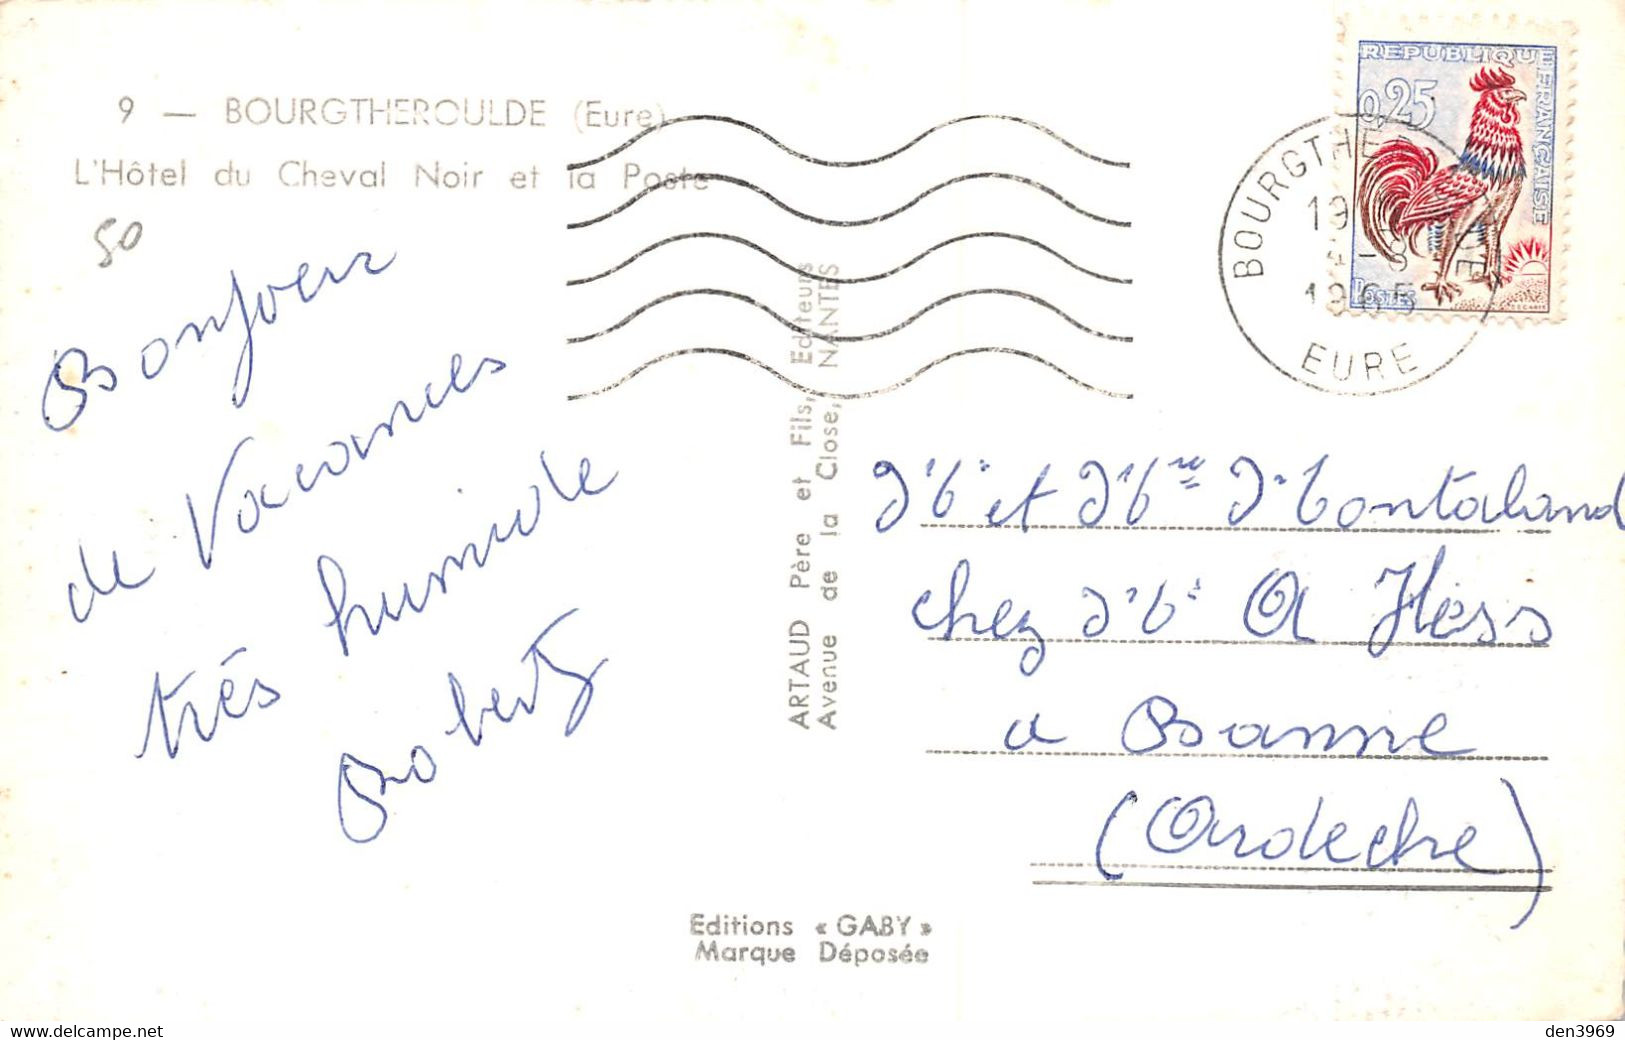 9 — BOURGTHEROULDE (Eure)
L'Hôtel du Cheval Noir et la Poste
50
Bonjour
de Vacances
très humide
Robert
ARTAUD Père et Fils, Editeurs
Avenue de la Close, NANTES
REPUBLIQUE FRANÇAISE
0,25
POSTES
BOURGTHE
19
-8
1965
EURE
Mr et Mme Montaland
chez Mr A Hess
a Banne
(Ardeche)
Editions « GABY »
Marque Déposée
https://www.delcampe.net
den3969